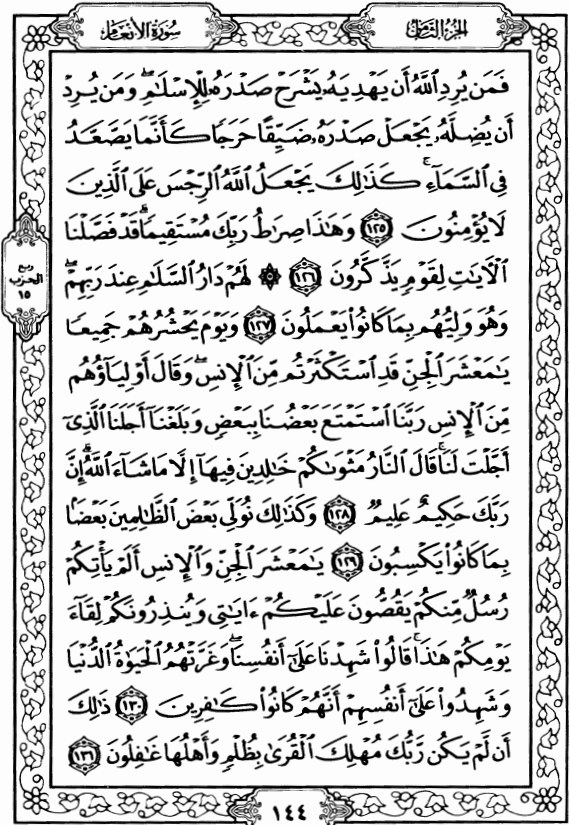 سُورَةُ الأَنْعَام
الجُزْءُ الثَّامِنُ
فَمَن يُرِدِ ٱللَّهُ أَن يَهْدِيَهُۥ يَشْرَحْ صَدْرَهُۥ لِلْإِسْلَٰمِۖ وَمَن يُرِدْ
أَن يُضِلَّهُۥ يَجْعَلْ صَدْرَهُۥ ضَيِّقًا حَرَجًا كَأَنَّمَا يَصَّعَّدُ
فِى ٱلسَّمَآءِۚ كَذَٰلِكَ يَجْعَلُ ٱللَّهُ ٱلرِّجْسَ عَلَى ٱلَّذِينَ
لَا يُؤْمِنُونَ ١٢٥ وَهَٰذَا صِرَٰطُ رَبِّكَ مُسْتَقِيمًاۗ قَدْ فَصَّلْنَا
ٱلْءَايَٰتِ لِقَوْمٍ يَذَّكَّرُونَ ١٢٦ ۞ لَهُمْ دَارُ ٱلسَّلَٰمِ عِندَ رَبِّهِمْۖ
وَهُوَ وَلِيُّهُم بِمَا كَانُوا۟ يَعْمَلُونَ ١٢٧ وَيَوْمَ يَحْشُرُهُمْ جَمِيعًا
يَٰمَعْشَرَ ٱلْجِنِّ قَدِ ٱسْتَكْثَرْتُم مِّنَ ٱلْإِنسِۖ وَقَالَ أَوْلِيَآؤُهُم
مِّنَ ٱلْإِنسِ رَبَّنَا ٱسْتَمْتَعَ بَعْضُنَا بِبَعْضٍ وَبَلَغْنَآ أَجَلَنَا ٱلَّذِىٓ
أَجَّلْتَ لَنَاۚ قَالَ ٱلنَّارُ مَثْوَىٰكُمْ خَٰلِدِينَ فِيهَآ إِلَّا مَا شَآءَ ٱللَّهُۗ إِنَّ
رَبَّكَ حَكِيمٌ عَلِيمٌ ١٢٨ وَكَذَٰلِكَ نُوَلِّى بَعْضَ ٱلظَّٰلِمِينَ بَعْضًۢا
بِمَا كَانُوا۟ يَكْسِبُونَ ١٢٩ يَٰمَعْشَرَ ٱلْجِنِّ وَٱلْإِنسِ أَلَمْ يَأْتِكُمْ
رُسُلٌ مِّنكُمْ يَقُصُّونَ عَلَيْكُمْ ءَايَٰتِى وَيُنذِرُونَكُمْ لِقَآءَ
يَوْمِكُمْ هَٰذَاۚ قَالُوا۟ شَهِدْنَا عَلَىٰٓ أَنفُسِنَاۖ وَغَرَّتْهُمُ ٱلْحَيَوٰةُ ٱلدُّنْيَا
وَشَهِدُوا۟ عَلَىٰٓ أَنفُسِهِمْ أَنَّهُمْ كَانُوا۟ كَٰفِرِينَ ١٣٠ ذَٰلِكَ
أَن لَّمْ يَكُن رَّبُّكَ مُهْلِكَ ٱلْقُرَىٰ بِظُلْمٍ وَأَهْلُهَا غَٰفِلُونَ ١٣١
ربع
الحزب
١٥
١٤٤